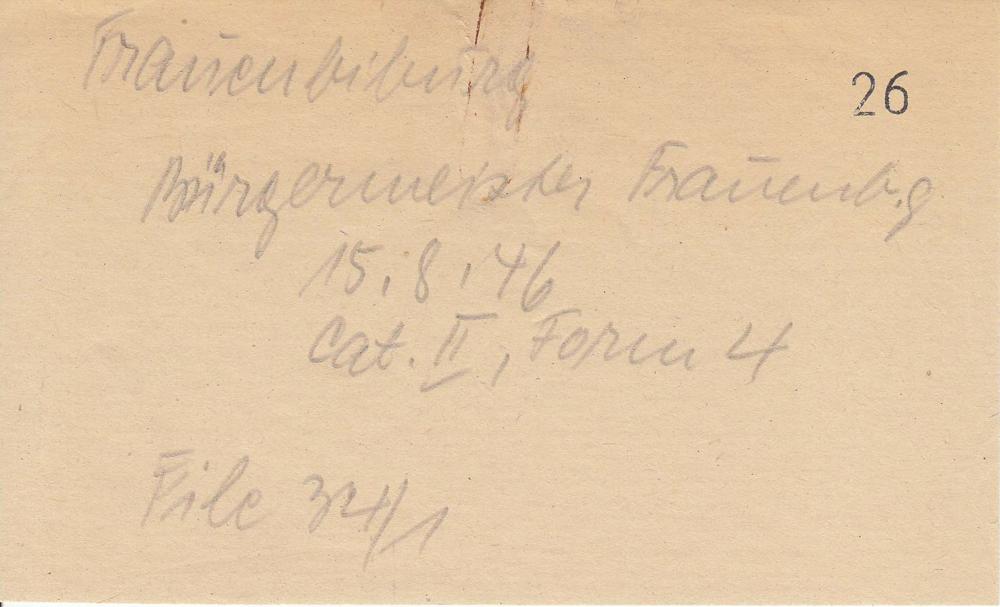 Frauenbiburg
26
Bürgermeister Frauenb.g
15.8.46
Cat. II, Form 4
File 34/1